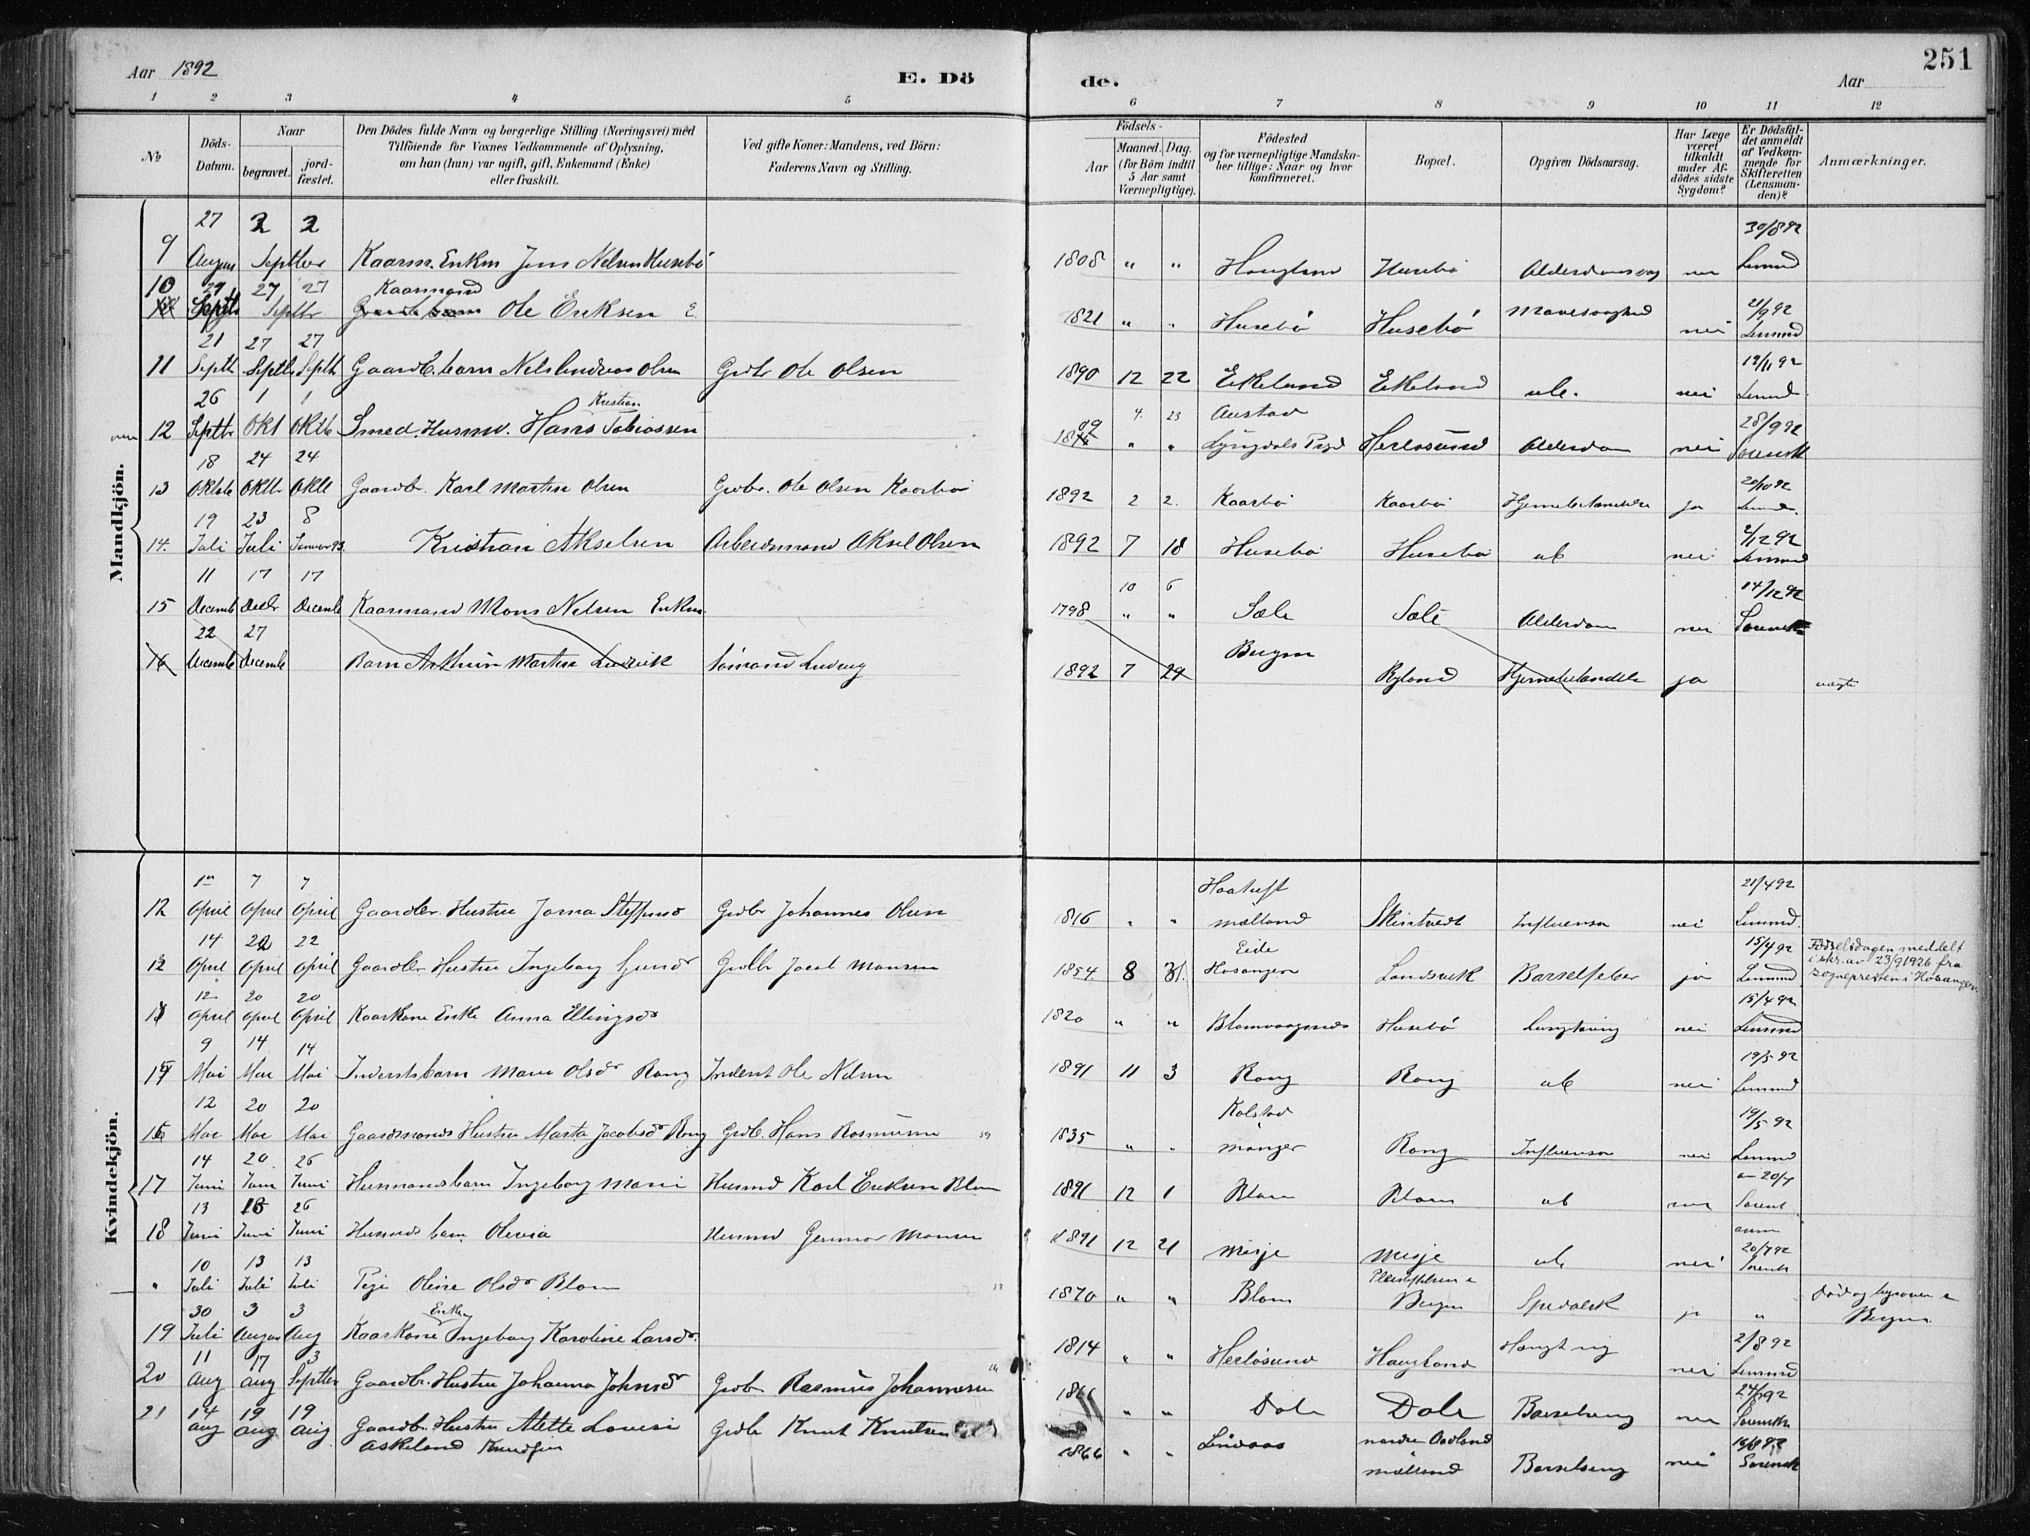 251
Aar 1892
E. Dö
de.
Aar
1 2 3 4 5 6 7 8 9 10 11 12
№
Döds-Datum.
Naar
begravet.
jordfæstet.
Den Dödes fulde Navn og borgerlige Stilling (Næringsvei) med
Tilföiende for Voxnes Vedkommende af Oplysning,
om han (hun) var ugift, gift, Enkemand (Enke)
eller fraskilt.
Ved gifte Koner: Mandens, ved Börn:
Faderens Navn og Stilling.
Födsels-
Aar
Maaned. Dag.
(for Börn indtil
5 Aar samt
Værnepligtige).
Födested
og for værnepligtige Mandskaber
tillige: Naar og hvor
konfirmeret.
Bopæl.
Opgiven Dödsaarsag.
Har Læge
været
tilkaldt
under Afdödes
sidste
Sygdom?
Er Dödsfaldet
anmeldt
af Vedkommende
for
Skifteretten
(Lensmanden)?
Anmærkninger.
Mandkjön.
27 2 2 30/8 92
9 August Septbr Kaarm. Enkm Jens Nelsen Husebö 1808 " " Haugland Husebö Alderdomssvag nei Lensmd
10 27 27 Kaarmand
Septbr Septbr Ole Eriksen E. 1821 " " Husebö Husebö nei 21/9 92 Lensmd
21 27 27
11 Septb Septb Septb Gaardb. barn Nels Andreas Olsen Grdbr Ole Olsen 1890 12 22 Ekeland Ekeland ub. nei Lensmd
26 1 1 Kristian 4. 23 Austad 28/9 92
12 Septbr Okt Oktb Smed. Husmd. Hans Tobiassen 09 " " Lyngdals Prgd Herlösund Alderdom nei Sorensk
18 24 24 20/10 92
13 Oktb Oktb Oktb Gaardbr. Karl Martin Olsen Grdbr. Ole Olsen Kaarbö 1892 2 2. Kaarbö Kaarbö Hjernebetændelse ja Lensmd.
19 23 8 2/12 92
14. Juli Juli Januar 93. Kristian Akselsen Arbeidsmand Aksel Olsen 1892 7 18 Husebö Husebö ub nei Lensmd
11 17 17 10 6 14/12 92
15 Decemb Decbr Decemb Kaarmand Mons Nelsen Enkm. 1798 " " Sæle Sæle Alderdom nei Sorensk
22 27 Bergen
16 Decemb Decemb Barn Arthur Martin Ludvik Sömand Ludvig 1892 7 29 Ryland Hjernebetændelse ja
Kvindekjön.
1ste 7 7 Haatuft 21/4 92
12 April April April Gaardbr. Hustru Jorna Steffensd Grdbr Johannes Olsen 1816 " " Mælland Skintveit Influensa nei Lensmd.
14 22 22 Eide 15/4 92 Födselsdagen meddelt
12 April April April Gaardbr Hustru Ingeborg Grdbr Jacob Monsen 1854 8 31. Hosanger Landsvik Barselfeber ja Lensmd i skr. av 23/9 1926 fra
sognepresten i Hosanger.
12 20 20 15/4 92
April April April Kaarkone Enke Anna Ellingsdr 1820 " " Blomvaagnes Husebö nei Lensmd
9 14 14 19/5 92
Mai Mai Mai Inderstsbarn Marie Olsdr Rong Inderst Ole Nelsen 1891 11 3 Rong Rong ub nei Lensmd
12 20 20 Kolstad 19/5 92
16 Mai Mai Mai Gaardmands Hustru Marta Jacobsdr Rong Grdb. Hans Rasmussen 1835 " " Manger Rong Influensa nei Lensmd
14 20. 26
17 Juni Juni Juni Husmandsbarn Ingeborg Marie Husmd Karl Eriksen Blom 1891 12 1 Blom Blom ub nei Sorensk
13 18 26
18 Juni Juni Juni Husmds barn Olevia Husmd Gunnar Monsen 1891 12 21 Misje Misje ub nei 20/7 92 Sorensk
10 13 13 Pleiestiftelsen i
" Juli Juli Juli Pige Oline Olsdr Blom 1870 " " Blom Bergen Spedalsk ja " Död og begraven i Bergen.
30 3 3 Enke
19 Juli August Aug Kaarkone Ingeborg Karoline Larsdr. 1814 " " Herlösund Haugland nei 2/8 92 Lensmd
11 17 3
20 Aug Aug Septbr Gaardbr. Hustru Johanna Johnsdr Grdbr Rasmus Johannesen " " Dale Dale Barselseng nei Sorensk
21 14 19 19
Aug Aug Aug. Gaardbr. Hustru Alette Lovise Grdb Knut Knutsen 1866 " " Lindaas nordre Aadland
Askeland Knudsen Mælland Barselseng nei Sorensk